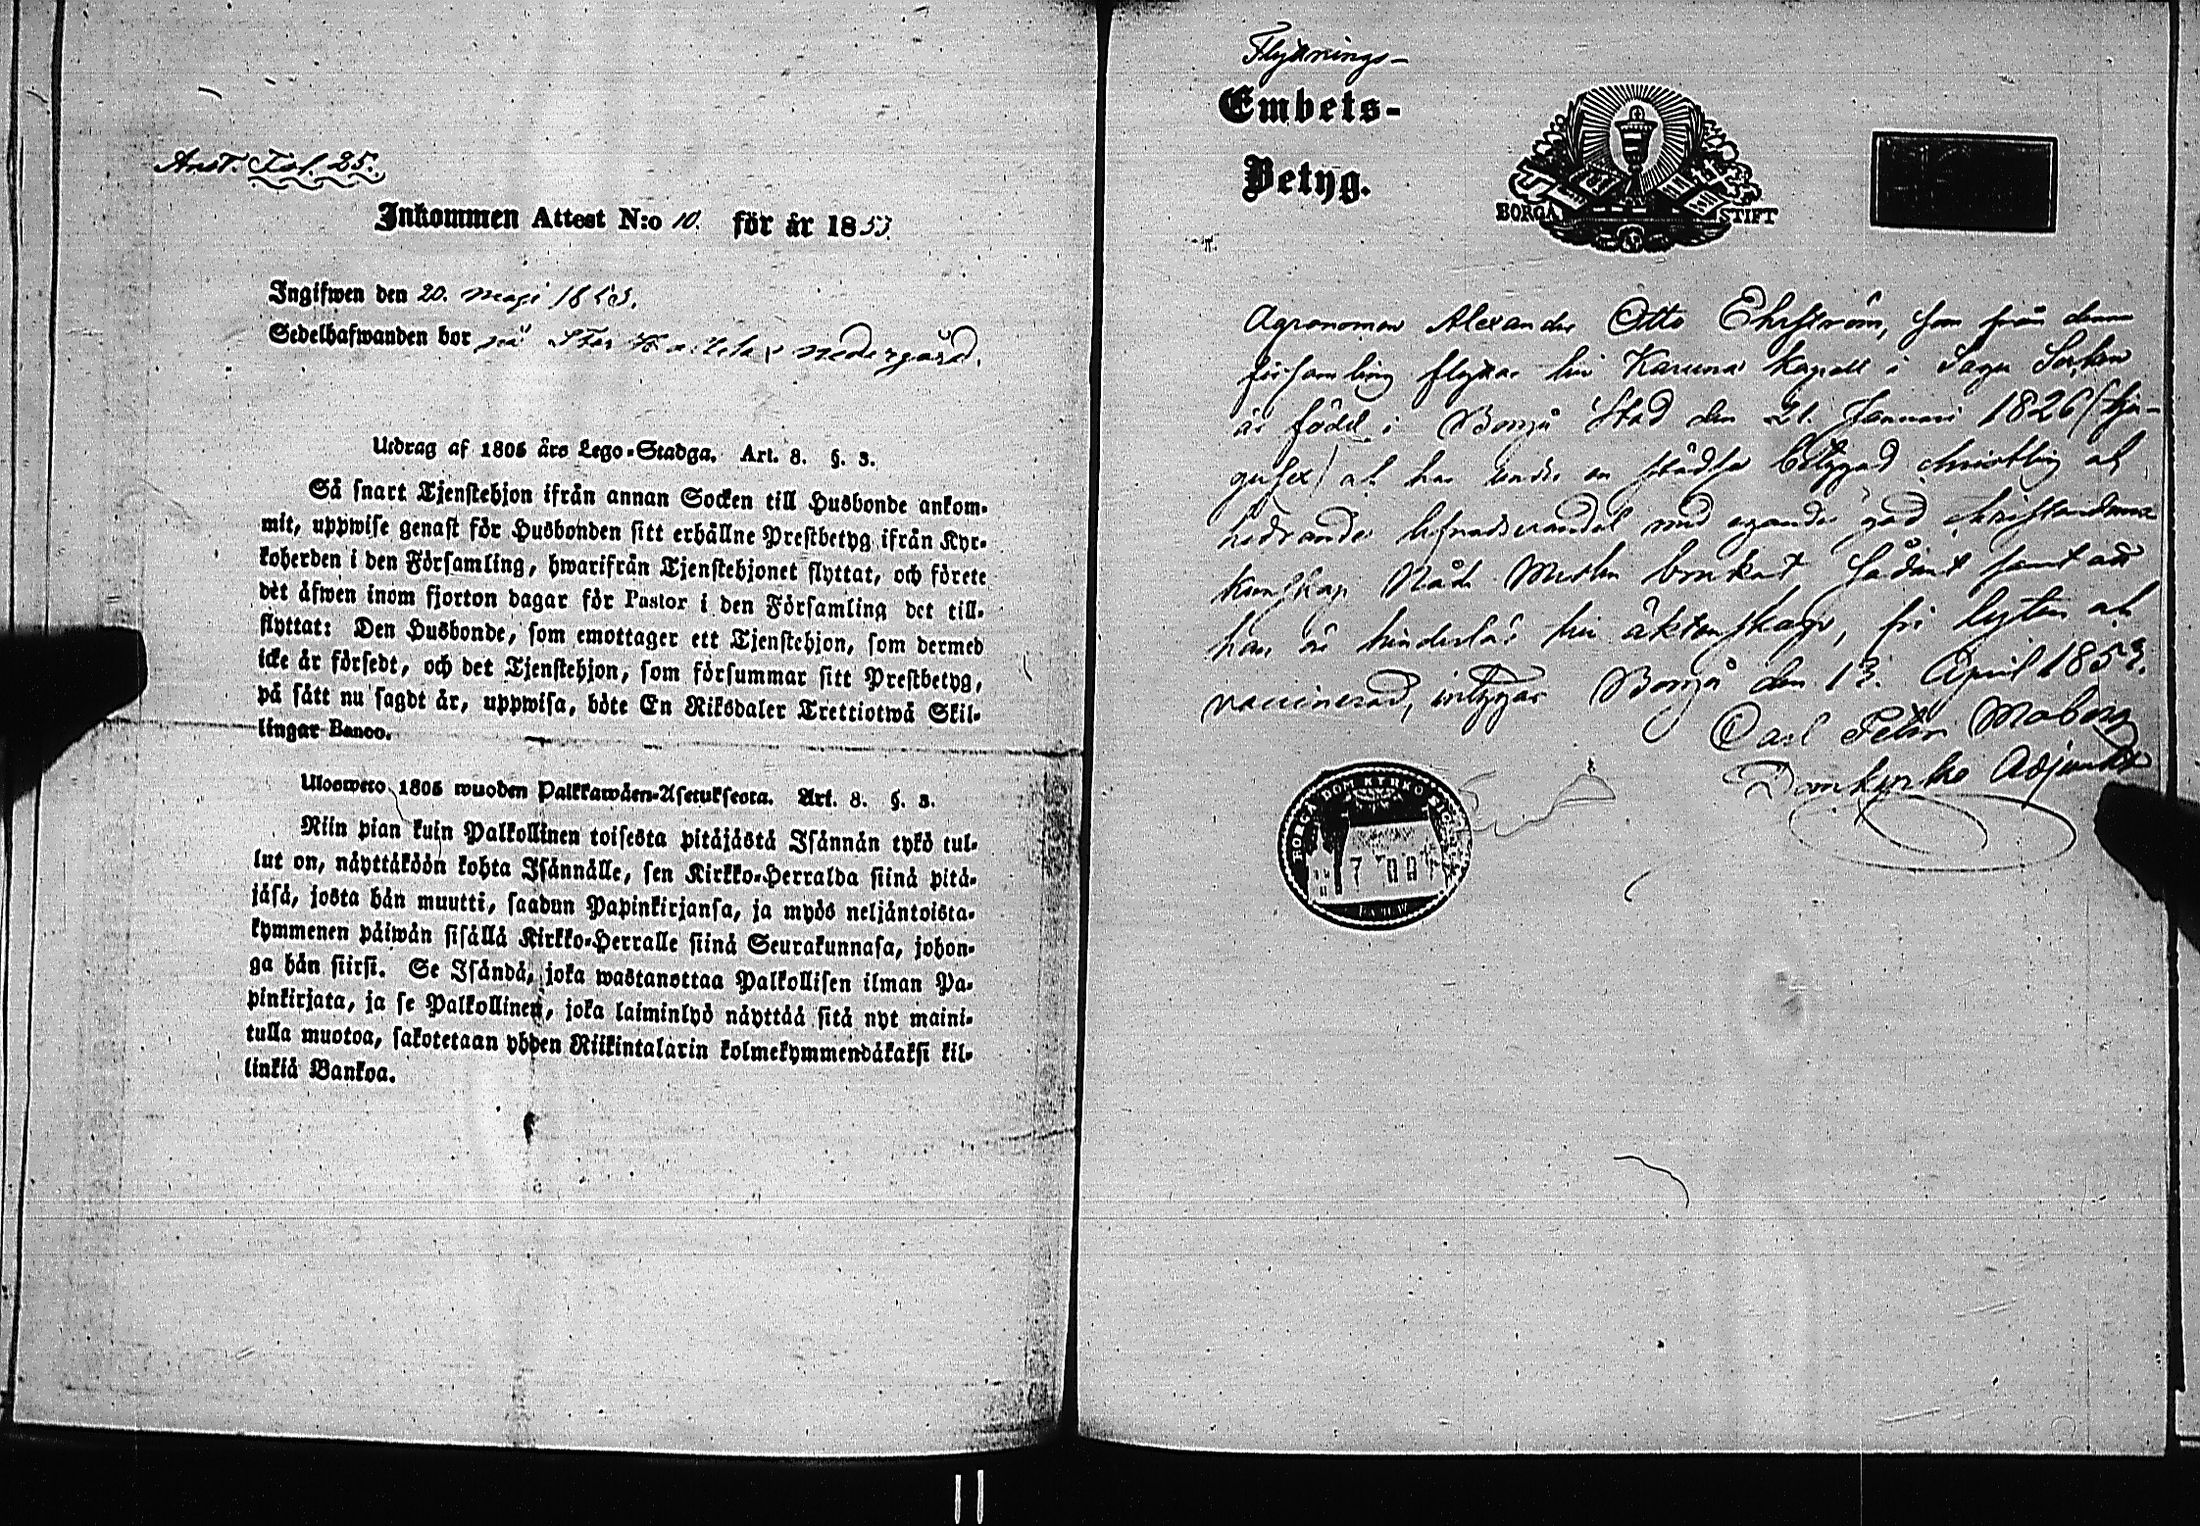 Anst. Fol. 25.
Inkommen Attest N:o 10. för år 1853.
Ingifwen den 20. maji 1853.
Sedelhafwanden bor på Stor nedergård.
Utdrag af 1805 års Lego-Stadga. Art. 8. §. 3.
Så snart Tjenstehjon ifrån annan Socken till Husbonde ankom-
mit, uppwise genast för Husbonden sitt erhållne Prestbetyg ifrån Kyr-
koherden i den Församling, hwarifrån Tjenstehjonet flyttat, och förete
det åfwen inom fjorton dagar för Pastor i den Församling det till-
flyttat: Den Husbonde, som emottager ett Tjenstehjon, som dermed
icke är försedt, och det Tjenstehjon, som försummar sitt Prestbetyg,
på sätt nu sagdt är, uppwisa, böte En Riksdaler Trettiotwå Skil-
lingar Banco.
Ulosweto 1805 wuoden Palkkawäen-Asetuksesta. Art. 8. §. 3.
Niin pian kuin Palkollinen toisesta pitäjästä Isännän tykö tul-
lut on, näyttäköön kohta Isännälle, sen Kirkko-Herralda siinä pitä-
jäsä, josta hän muutti, saadun Papinkirjansa, ja myös neljäntoista-
kymmenen päiwän sisällä Kirkko-Herralle siinä Seurakunnasa, johon-
ga hän siirsi. Se Isändä, joka wastanottaa Palkollisen ilman Pa-
pinkirjata, ja se Palkollinen, joka laiminlyö näyttää sitä nyt maini-
tulla muotoa, sakotetaan yhden Riikintalarin kolmekymmendäkaksi kil-
linkiä Bankoa.
Flyttnings-
Embets-
Betyg.
BORGÅ STIFT
Agronomen Alexander Otto Ehrström, som från denna
församling flyttar till Karuna kapell i Sagu Socken
är född i Borgå Stad den 21. Januari 1826 (tju-
gusex) och har under en städse betygad christlig och
hedrande lefnadsvandel med egande god christendoms
kunskap Nåde Medlen brukat sådant samt att
han är hinderslös till äktenskap, fri lyten och
vaccinerad, intygar Borgå den 13. April 1853.
Carl Peter Moberg
Domkyrko Adjunkt
BORGÅ DOMKYRKO